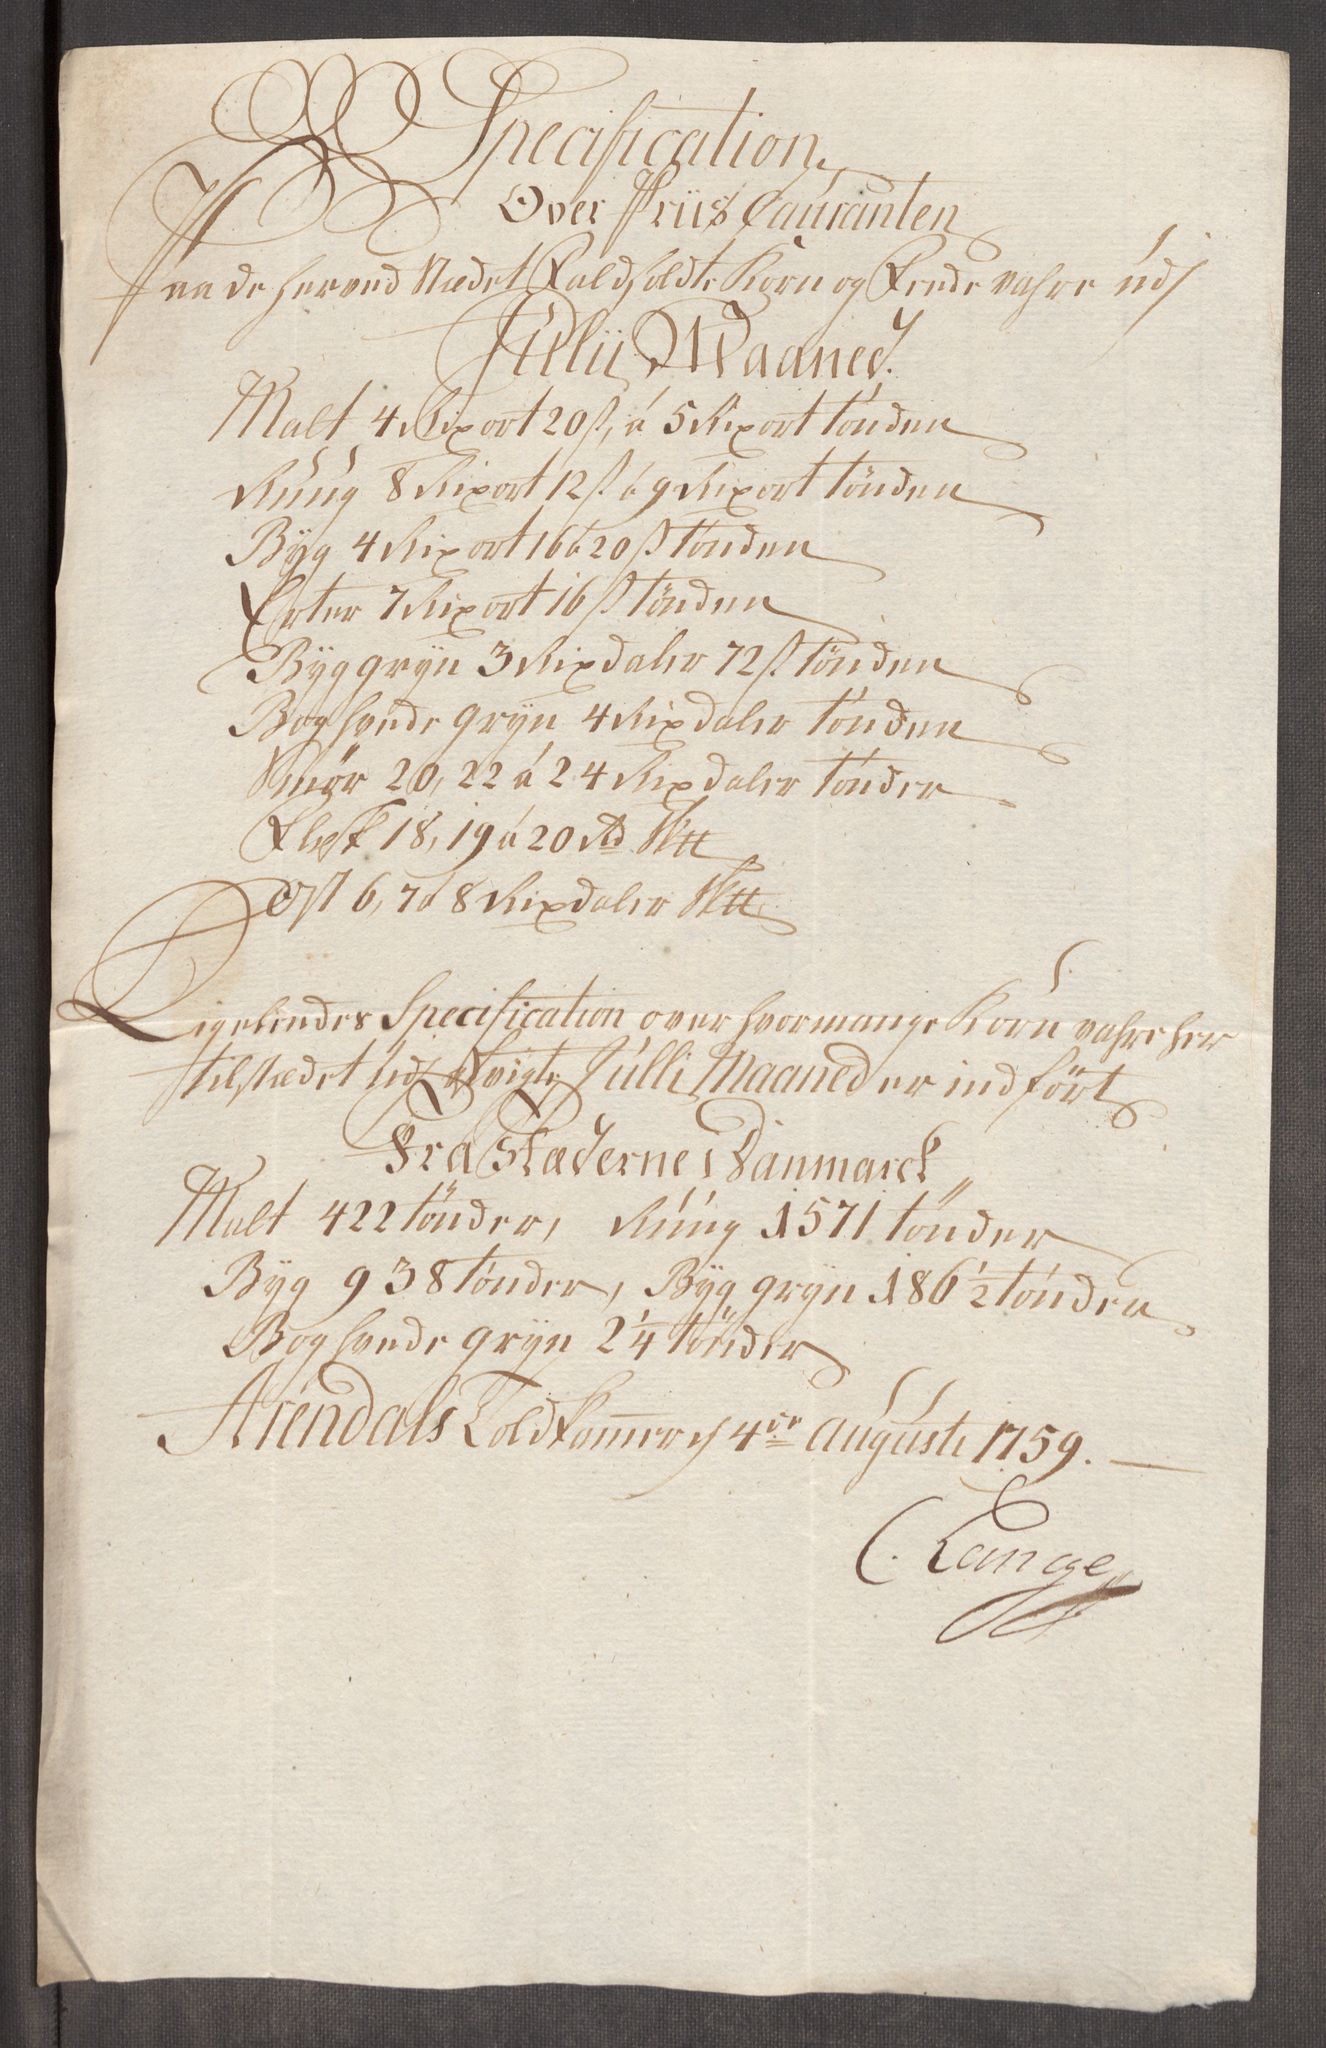 Specification
Over Priis Couranten
Paa de her ved Stædet Faldholdte Korn og Fede vahre udj
Julii Maaned.
Malt 4 Rixort 20 s, á 5 Rixort tönden
Rúúg 8 Rixort 12 s á 9 Rixort tönden
Byg 4 Rixort 16 á 20 s tönden
Erter 7 Rixort 16 s tönden
Byggryn 3 Rixdaler 72 s. tönden
Boghvede gryn 4 Rixdaler tönden
Smör 20, 22 á 24 Rixdaler tönder
Flesk 18, 19 á 20 Rd Sktt
Ost 6, 7 á 8 Rixdaler Sktt
Ligeledes Specification over hvormange Korn vahre her
til stædet udj Julli Maaned er indfört
Fra Stæderne i Danmarck
Malt 422 tönder, Rúúg 1571 tönder
Byg 938 tönder, Byggryn 186 1/2 tönden
Boghvede gryn 2 1/4 tönder
Arendals Toldkammer d 4de Augusti 1759.
C. Lange